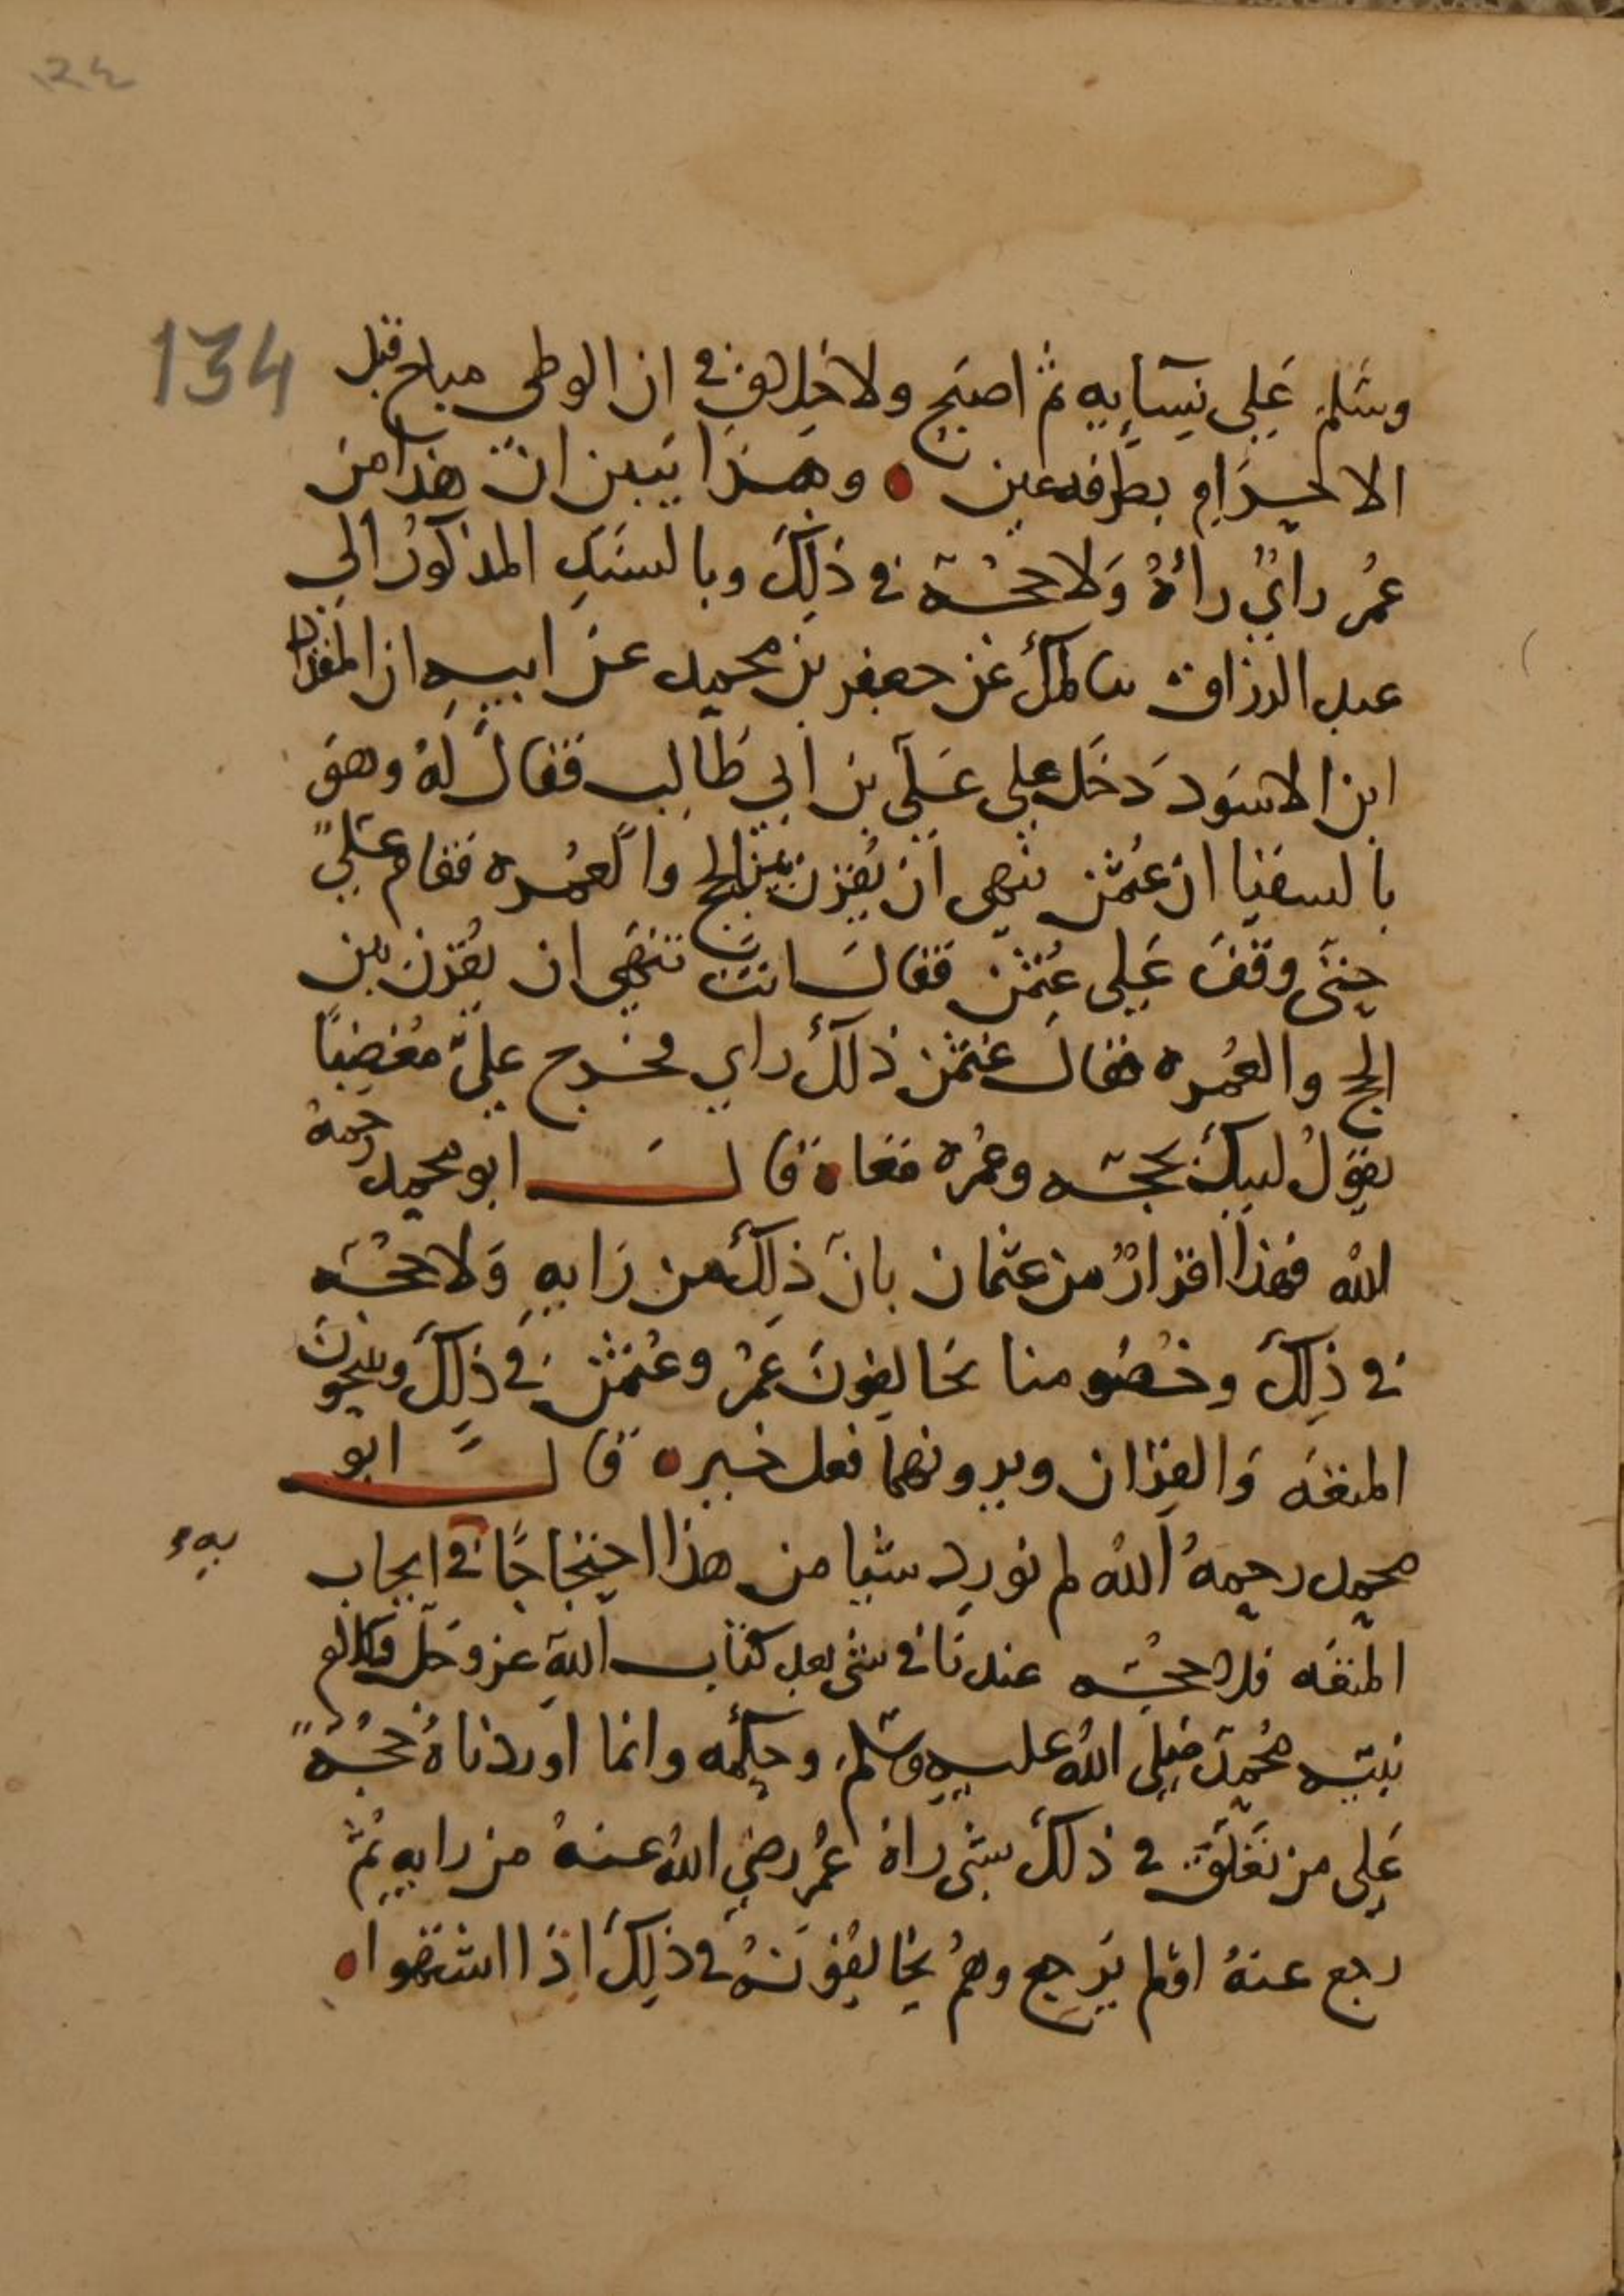 ١٣٤
134
وسَلم عَلى نِسَايه ثم اصبَح ولا خِلاف في ان الوطى مباح قبل
الاحرَام بطرفه عين وهَذا يَبين انّ هذا من
عُمر رايٌ رأهُ وَلا حجّة في ذلِكَ وبالسنَدِ المذكور الى
عبد الرزاق ما ملك عن جعفر بن محمد عن ابيه ان المقداد
ابن الاسوَد دَخَل على عَلي بن ابي طَالب فقال لهُ وهوَ
بالسقيَا ان عُثمن ينهى ان يُقرن بين الحج والعُمره فقام عَليٌّ
حتى وقفَ عَلى عثمن فقال انتَ تنهَى ان يُقرن بين
الحج والعُمره فقال عثمن ذلك راي فخرج عليّ مُغضِبًا
يقول لبيك بحجّه وعُمره مَعا قال ابو محمد رحمهُ
الله فهذا اقرارٌ من عثمان بانّ ذلك من رَايهِ وَلا حجّه
في ذلِكَ وخصُومنا يخالفونَ عمر وعُثمن في ذلِكَ ويبيحونَ
المتعَه وَالقِران ويرونهما فعل خير قال ابو
محمد رحمهُ الله لم نورد شيا من هذا احتجاجًا في ايجاب
به
المتعَه فلا حجّه عندنا في شي بعد كتاب الله عز وجل وكلام
نبيّه مُحمد صَلى الله عليه وسَلم وحكمه وانما اوردناهُ حُجّةً
عَلى من تعَلّق في ذلك بشي راهُ عُمر رضي الله عنهُ من رايه ثمّ
رجع عنهُ اوْ لم يَرجع وهمُ يخالفُونَهُ في ذلِكَ اذا اشتهَوا